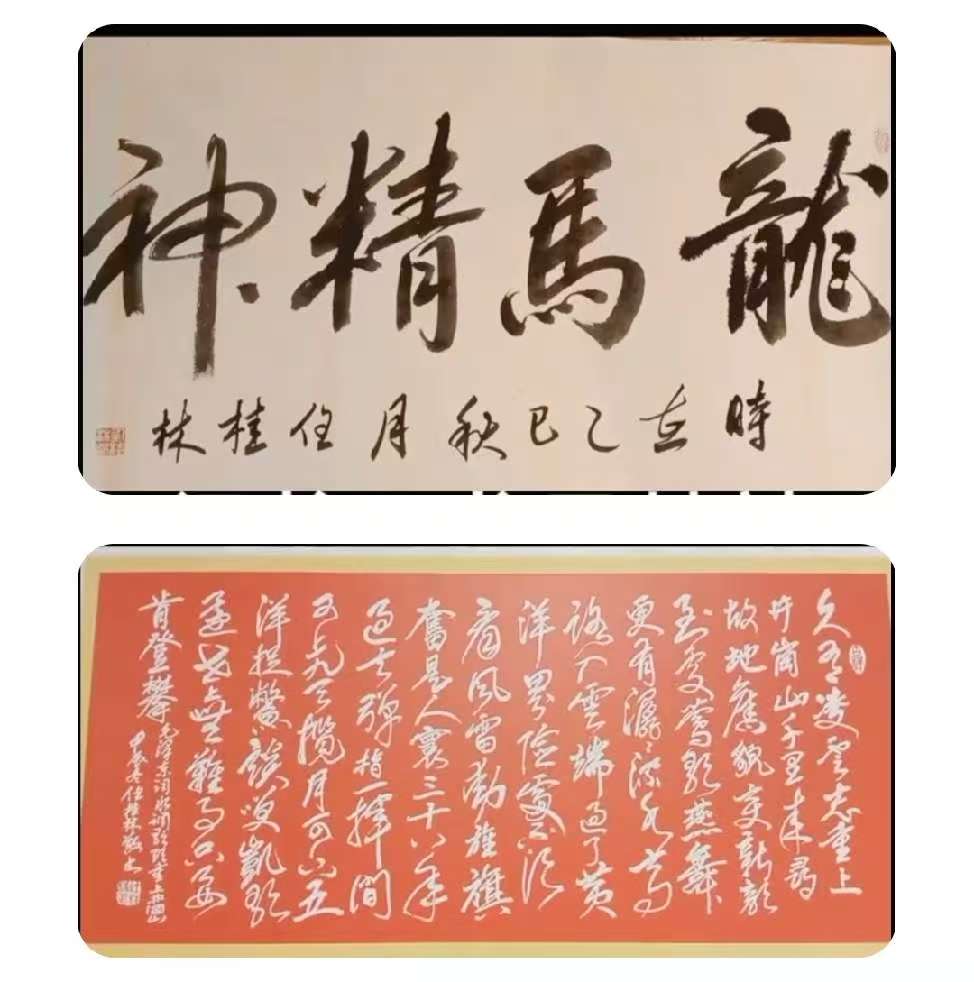 龍馬精神
時在乙巳秋月任桂林
久有凌雲志重上
井崗山千里來尋
故地舊貌變新顏
到處鶯歌燕舞
更有潺潺流水高
路入雲端過了黃
洋界險處不須
看風雷動旌旗
奮是人寰三十八年
過去彈指一揮間
可上九天攬月可下五
洋捉鱉談笑凱歌
還世上無難事只要
肯登攀
毛澤東詞水調歌頭重上井岡山
任桂林敬書